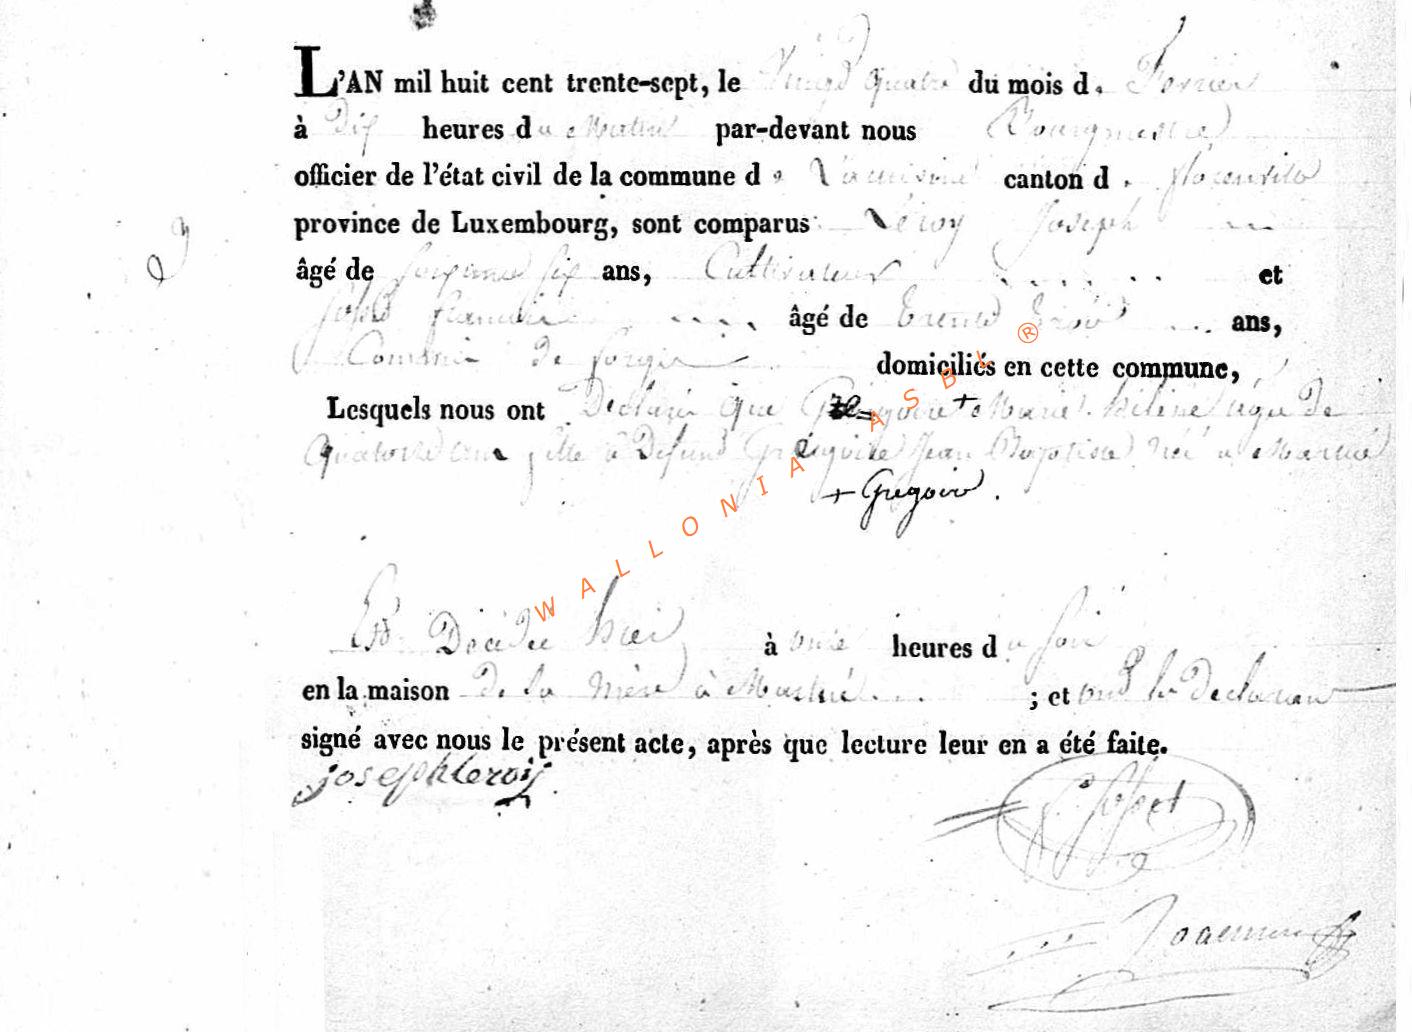 L'AN mil huit cent trente-sept, le Vingt quatre du mois de Fevrier
à Dix heures du Matin par-devant nous Bourgmestre
officier de l'état civil de la commune de canton de florenville
province de Luxembourg, sont comparus Léroy Joseph
âgé de ans, Cultivateur et
âgé de trente trois ans,
de forges domiciliés en cette commune,
Lesquels nous ont Déclaré que Grégoire + Marie hélène âgée de
quatorze ans, fille à Défunt Grégoire Jean Baptiste né à Martué
+ Gregoire.
Est Décédée hier à onze heures du soir
en la maison de la mère à Martué ; et ont les Declarans
signé avec nous le présent acte, après que lecture leur en a été faite.
joseph leroij
WALLONIA ASBL ®